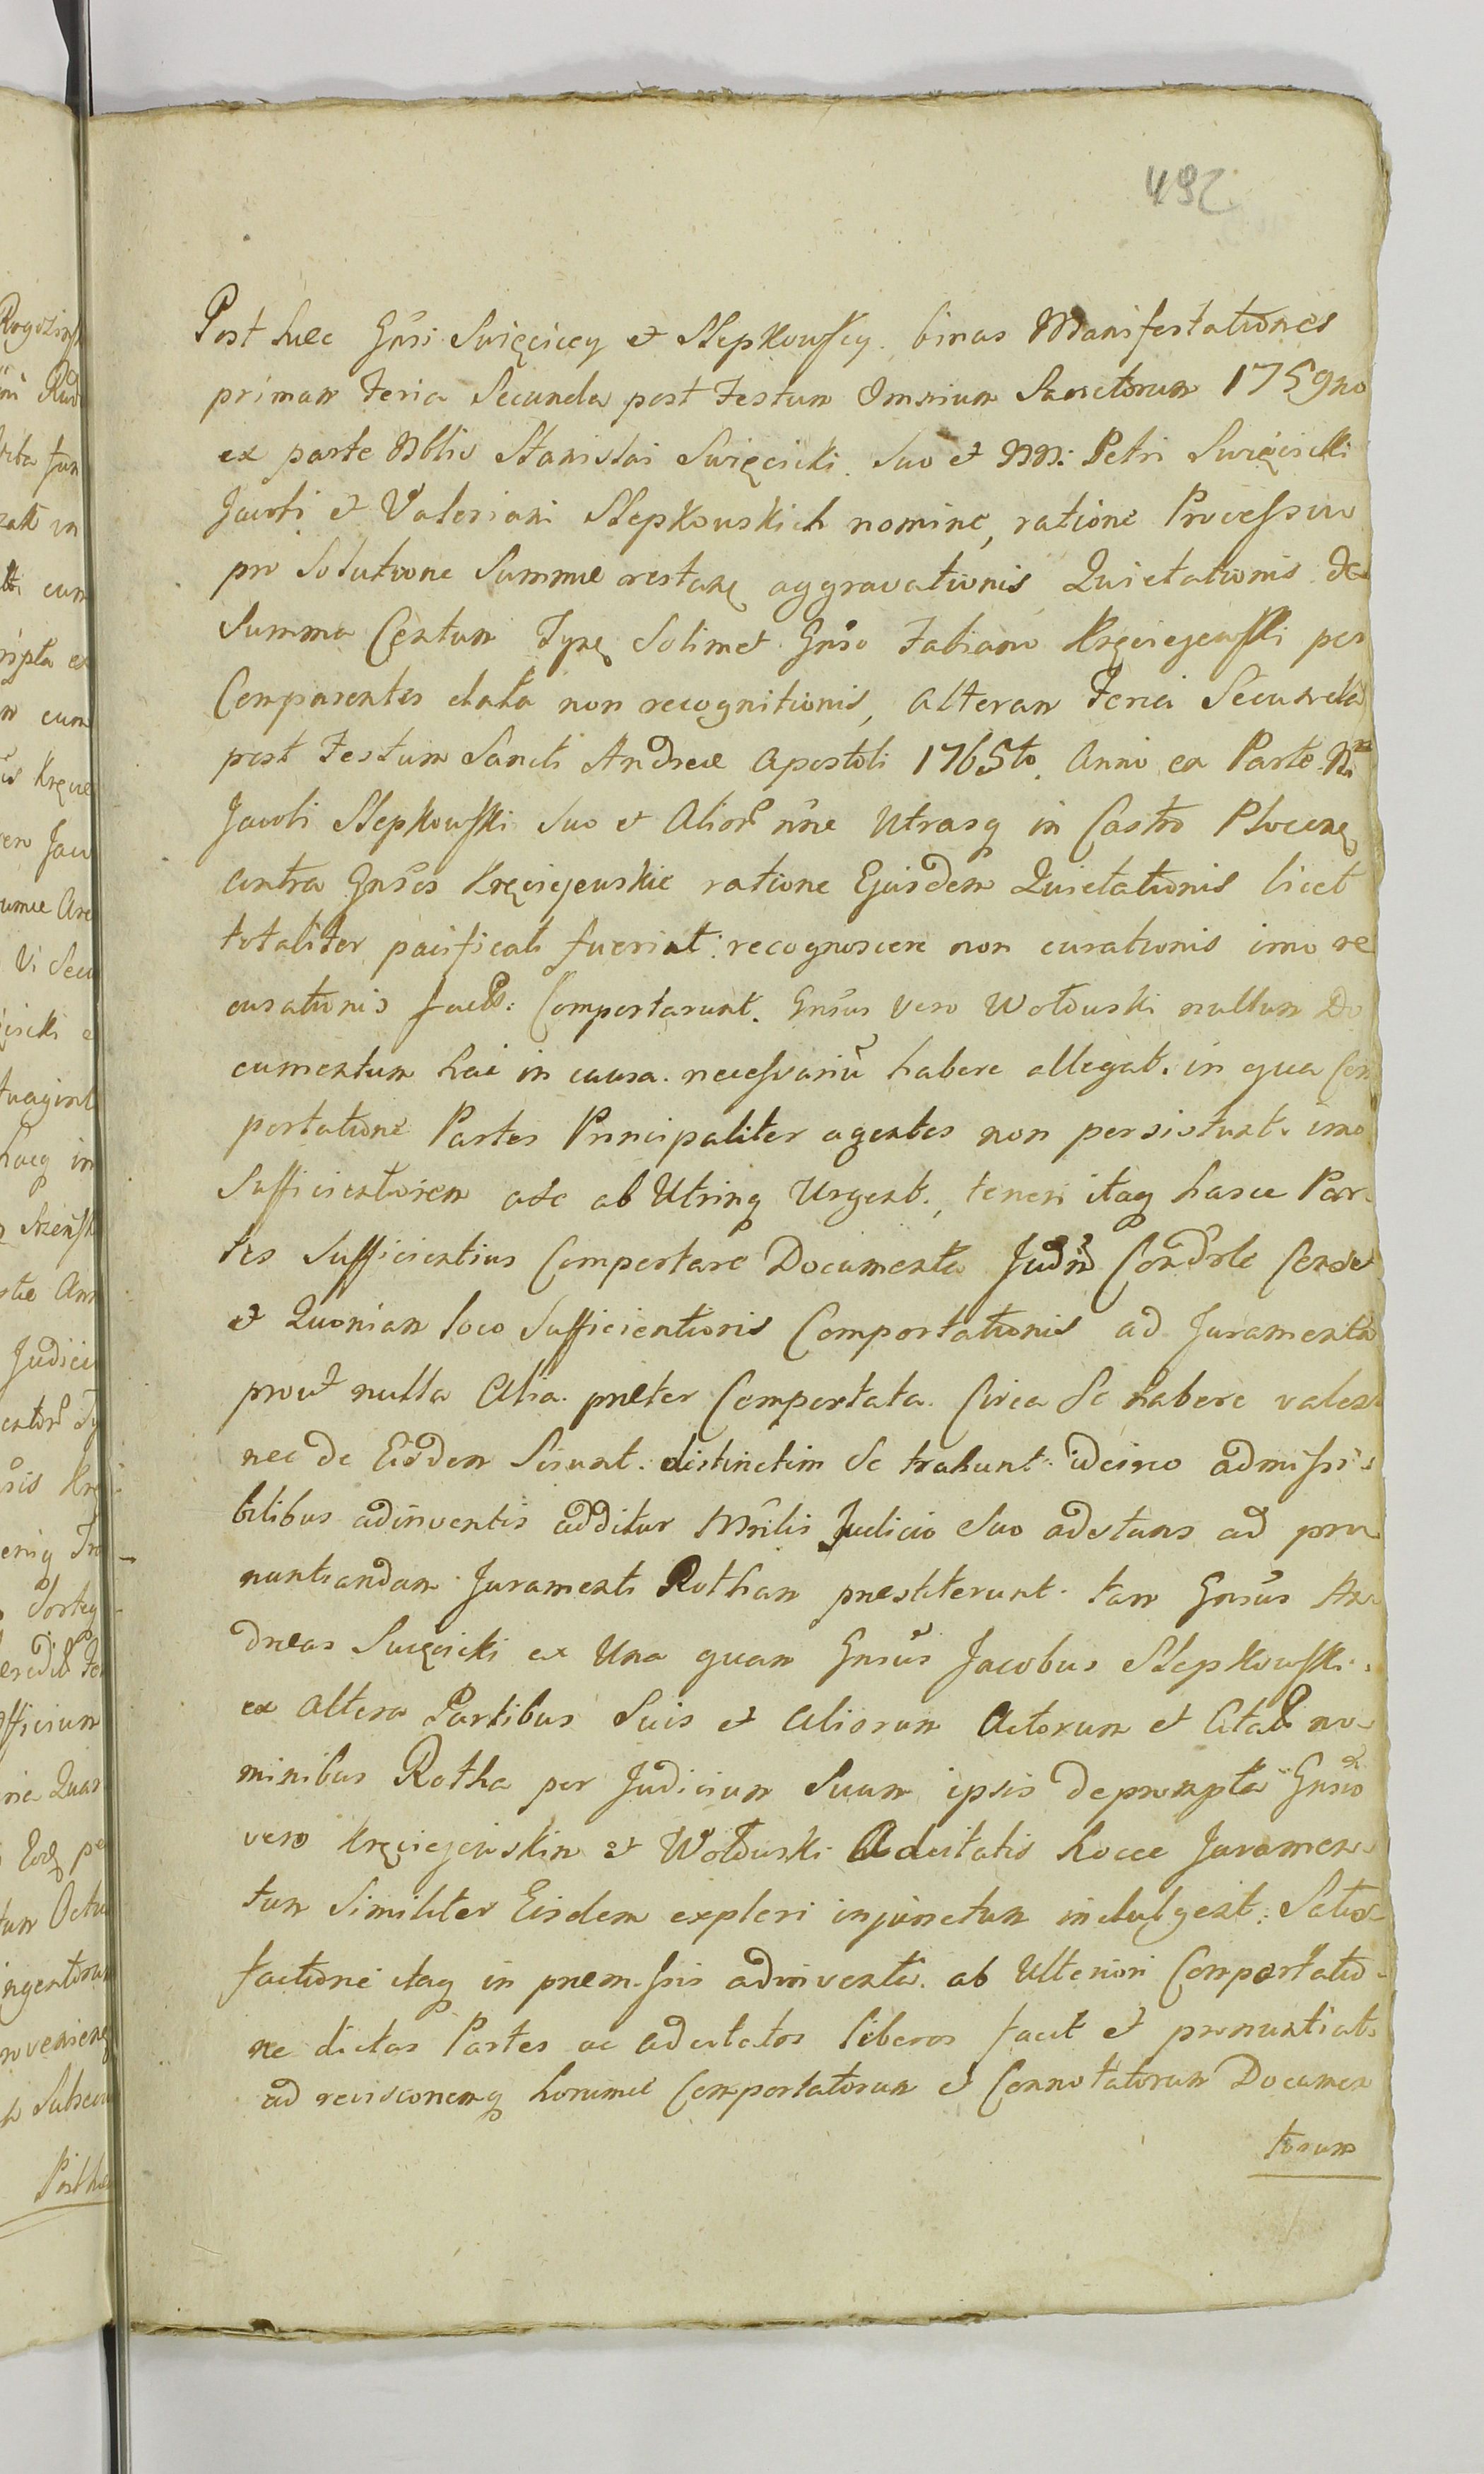 492
Post hæc Gnsi Swięciccy et Stępkowscy. binas Manifestationes
primam Feria Secunda post Festum Omnium Sanctorum 1759no
ex parte Nblis Stanislai Swięcicki. Suo et NN: Petri Swięcicki
Jacobi et Valeriani Stępkowskich nomine, ratione Processus
pro Solutione Summæ restanę aggravationis Quietationis de
Summa Centum Tynf. Solimet Gnso Fabiano Kręciejewski per
Comparentes data non recognitionis, alteram Feria Secunda
post Festum Sancti Andreæ Apostoli 1765to. Anno ex Parte N
Jacobi Stepkowski Suo et Alior nne Utrasq in Castro Plocenę
contra Gnsos Kręciejewskie ratione Ejusdem Quietationis licet
totaliter pacificati fuerint: recognoscere non curationis imo re
cusationis fact: Comportarunt. Gnsus vero Wołowski nullum Do
cumentum hac in causa. necessariu habere allegat. in qua Com
portatione Partes Principaliter agentes non persistunt. imo
Sufficientiorem adc ab Utrinq Urgent., teneri itaq hasce Par-
tes Sufficientius Comportare Documenta Judm Condrle Censet
et Quoniam loco Sufficientioris Comportationis ad Juramenta
prout nulla Alia. præter Comportata. Circa Se habere valent
nec de Eisdem Sciunt. distinctim Se trahunt. idcirco admissi-
bilibus adinventis additur Mrilis Judicio Suo adstans ad pro
nuntiandam Juramenti Rotham præstiterunt. tam Gnsus An
dreas Swięcicki ex Una quam Gnsus Jacobus Stępkowski.
ex altera Partibus Suis et Aliorum Actorum et Citat no-
minibus Rotha per Judicium Suum ipsis deprompta Gnso
vero Kręciejewskim et Wołowski Adcitatis hocce Juramen-
tum Similiter Eisdem expleri injunctum indulgent: Satis-
factione itaq in præmissis adinventa. ab Ulteriori Comportatio-
ne dictas Partes ac adcitatos liberos facit et pronuntiat.
ad revisionemq horumce Comportatorum et Connotatorum Documen
torum